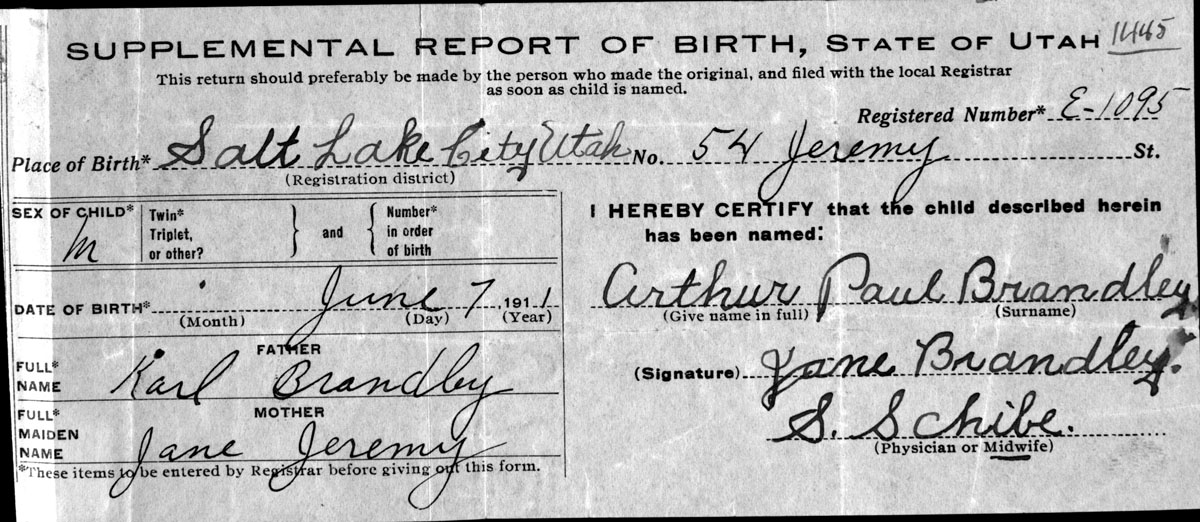 SUPPLEMENTAL REPORT OF BIRTH, STATE OF UTAH 1445
This return should preferably be made by the person who made the original, and filed with the local Registrar
as soon as child is named.
Registered Number* E-1095
Place of Birth* Salt Lake City Utah No. 54 Jeremy St.
(Registration district)
SEX OF CHILD* M
Twin*
Triplet,
or other?
and
Number*
in order
of birth
I HEREBY CERTIFY that the child described herein
has been named:
DATE OF BIRTH* June 7, 1911
(Month) (Day) (Year)
Arthur Paul Brandley
(Give name in full) (Surname)
FATHER
FULL*
NAME Karl Brandley
(Signature) Jane Brandley.
MOTHER
FULL*
MAIDEN
NAME Jane Jeremy
S. Schibe.
(Physician or Midwife)
*These items to be entered by Registrar before giving out this form.